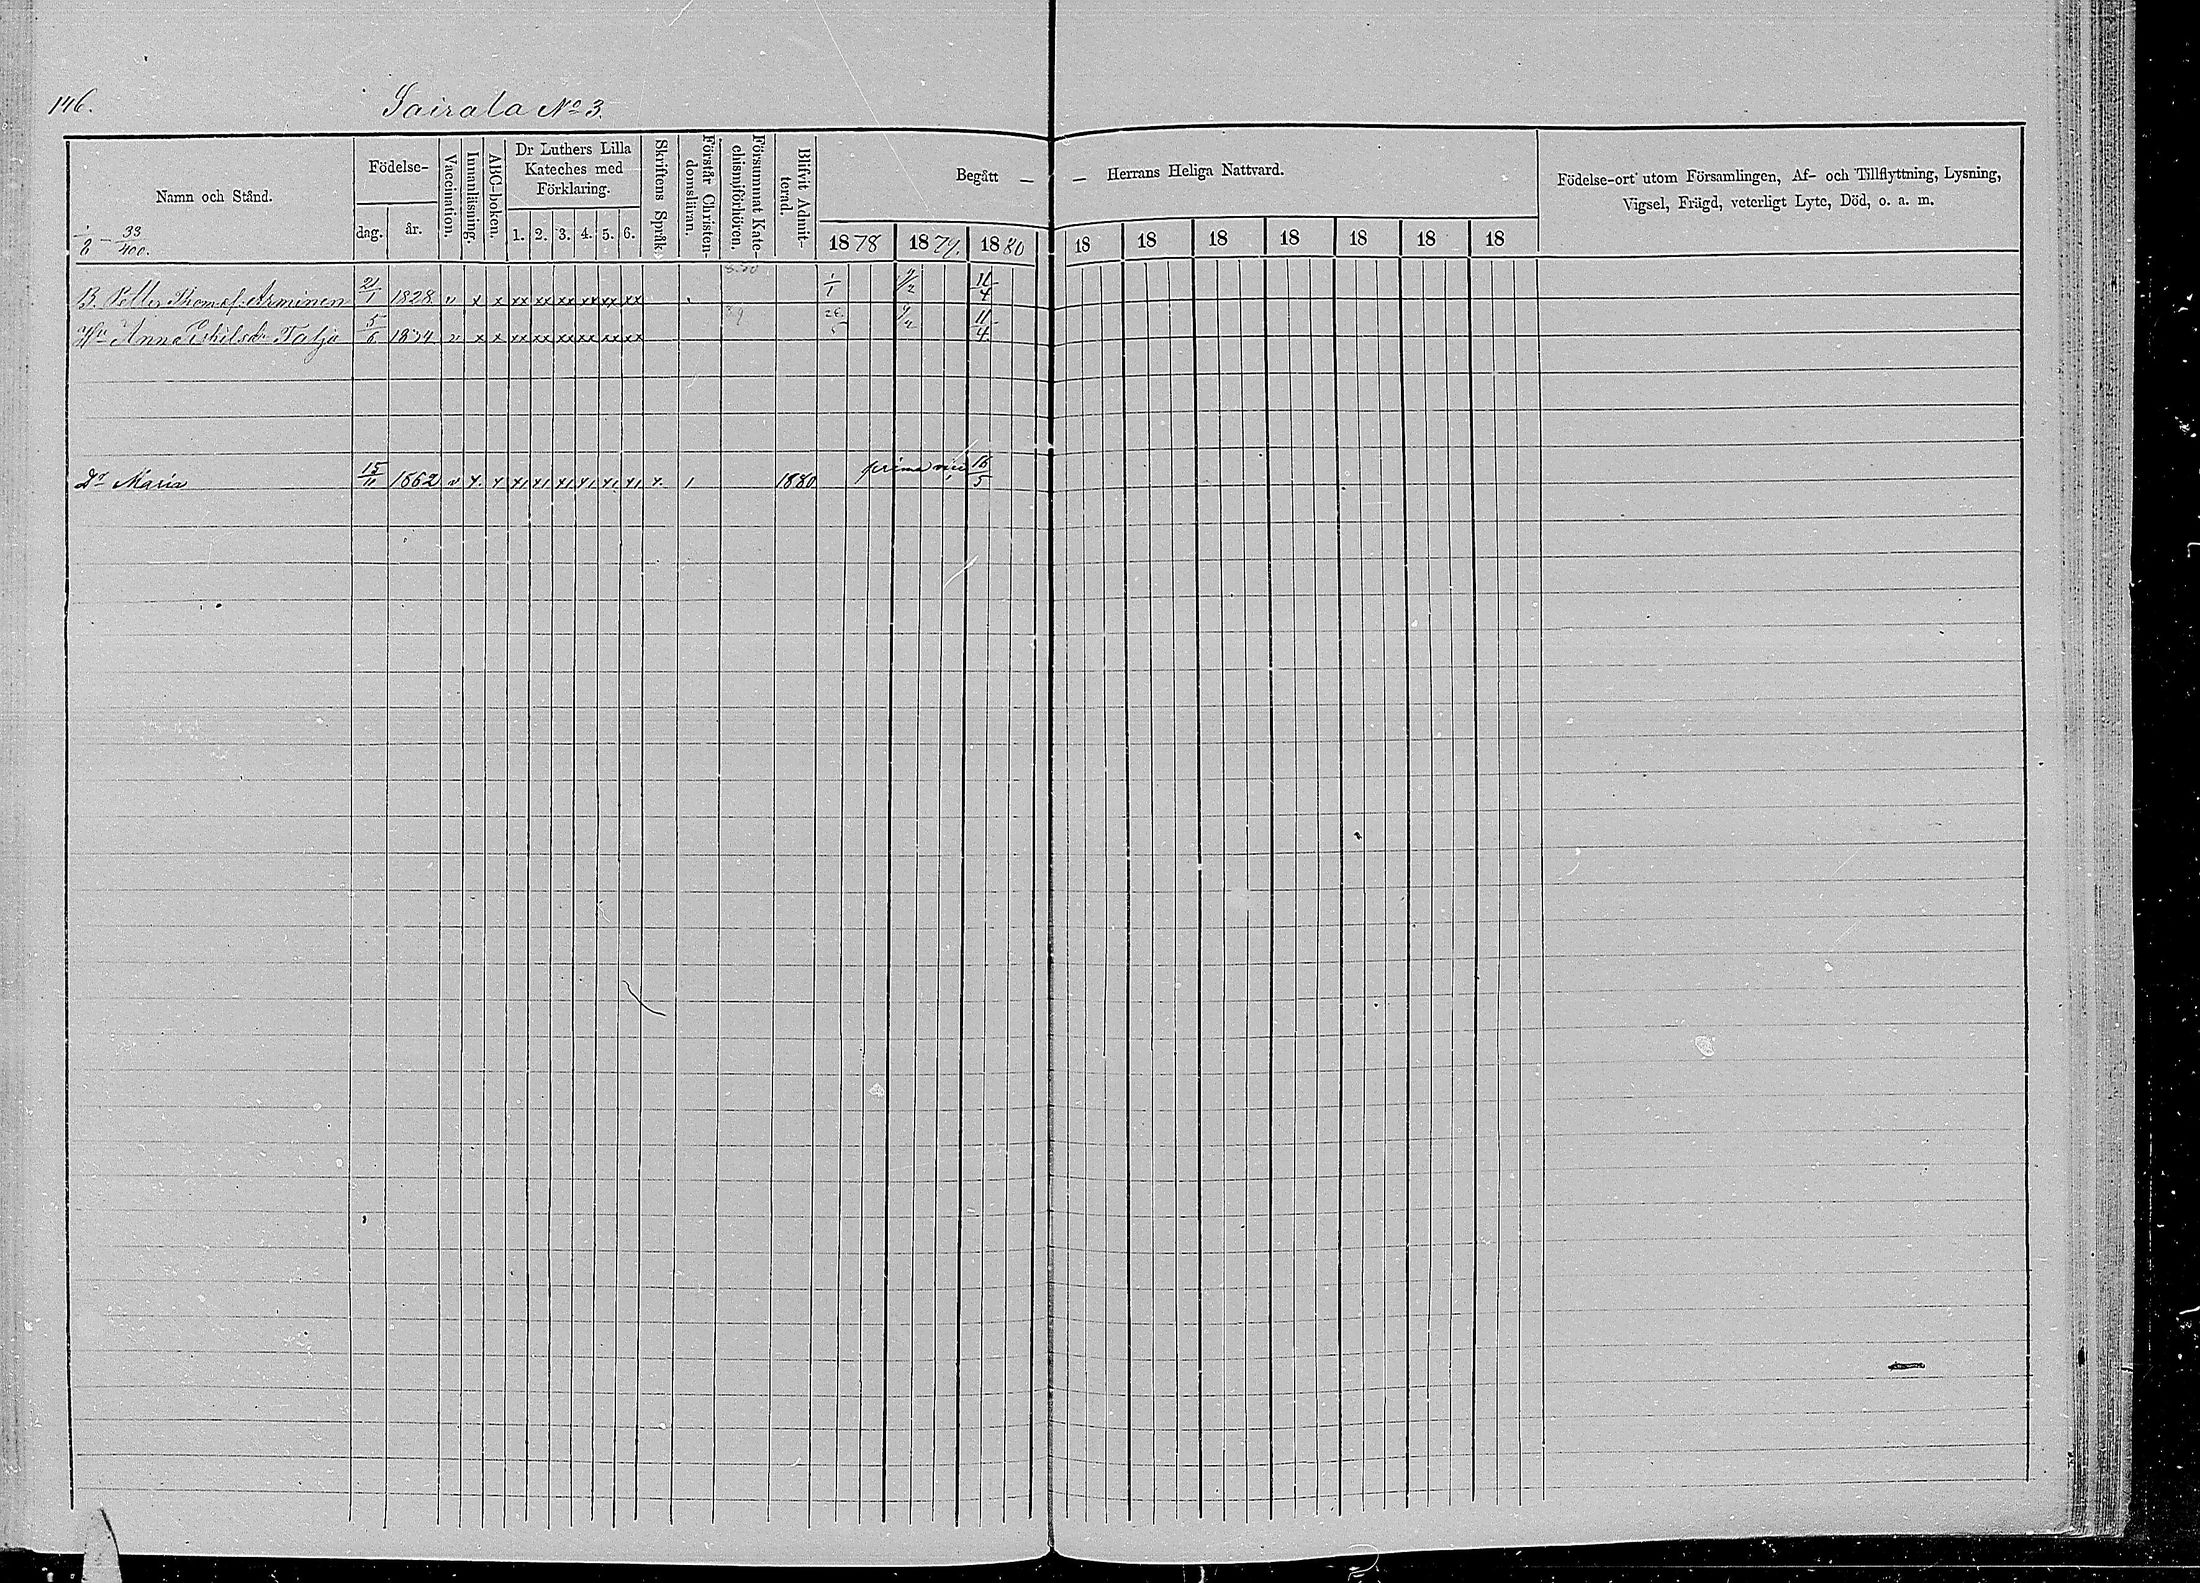 146.
Sairala No 3.
Namn och Stånd.
33
400.
Födelse-
dag.
år.
Vaccination.
Innanläsning.
ABC-boken.
Dr Luthers Lilla
Kateches med
Förklaring.
1. 2. 3. 4. 5. 6.
Skriftens Språk.
Förstår Christen-
domsläran.
Försummat Kate-
chismiförhören.
Blifvit Admit-
terad.
Begått —
— Herrans Heliga Nattvard.
1878 1879. 1880 18 18 18 18 18 18 18
Födelse-ort utom Församlingen, Af- och Tillflyttning, Lysning,
Vigsel, Frägd, veterligt Lyte, Död, o. a. m.
B. Petter Thomasf. Arminen 21/1 1828 v x x xx xx xx xx xx xx 1/1 11/4
Hu Anna Eskilsdr Talja 1834 v x x xx xx xx xx xx xx 11/4
Dr Maria 15/11 1862 v x. x x1 x1 x1 x1 x1 x1 x. 1 1880 prima vice 16/5